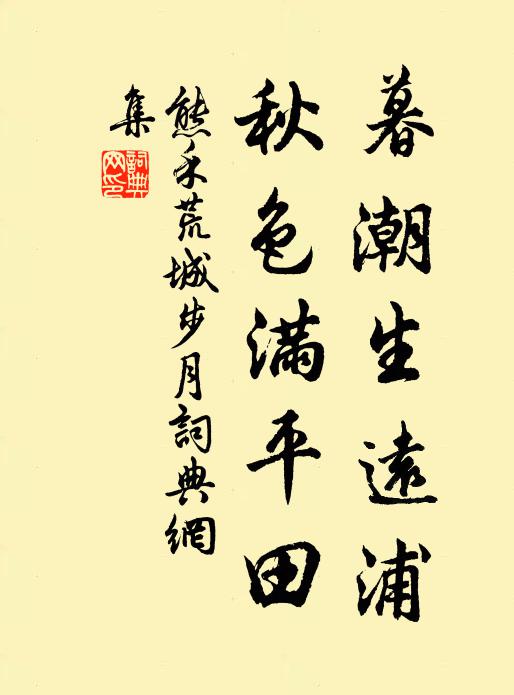 暮潮生遠浦
秋色滿平田
熊禾荒城步月詞典網
集
詞典網印